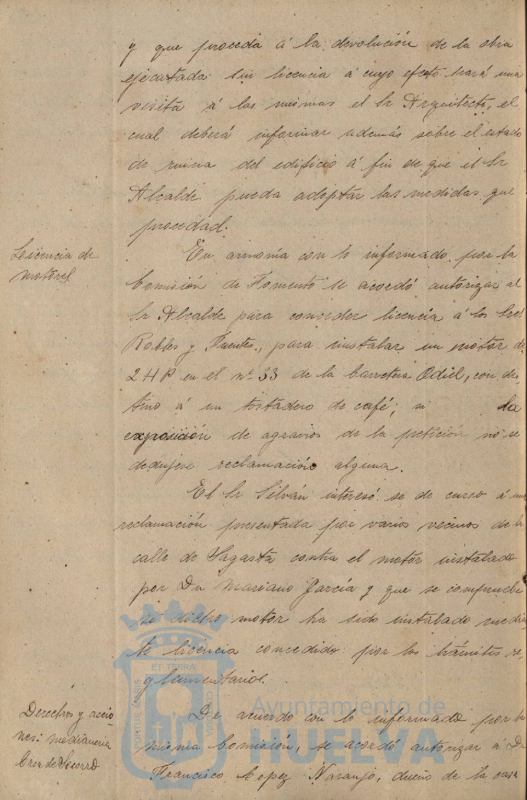 y que proceda á la devolución de la obra
ejecutada sin licencia á cuyo efecto hará una
visita á las mismas el Sr Arquitecto, el
cual deberá informar además sobre el estado
de ruina del edificio á fin de que el Sr
Alcalde pueda adoptar las medidas que
procedad.
Licencia de
motores
En armonía con lo informado por la
Comisión de Fomento se acordó autorizar al
Sr Alcalde para conceder licencia á los Sres
Robles y Fuente, para instalar un motor de
2 HP en el nº 33 de la Carretera Odiel, con des
tino á un tostadero de café, si la
exposición de agravios de la petición no se
dedujese reclamación alguna.
El Sr Silván interesó se de curso á una
reclamación presentada por varios vecinos de la
calle de Sagasta contra el motor instalado
por Dn Mariano García y que se compruebe
si dicho motor ha sido instalado media
te licencia concedido por los trámites re
glamentarios.
Derechos y accio
nes medianería
Cruz de Socorro
De acuerdo con lo informado por la
misma Comisión, se acordó autorizar á Dn
Francisco Lopez Naranjo, dueño de la casa
PORTUS MARIS
ET TERRÆ
Ayuntamiento de
HUELVA